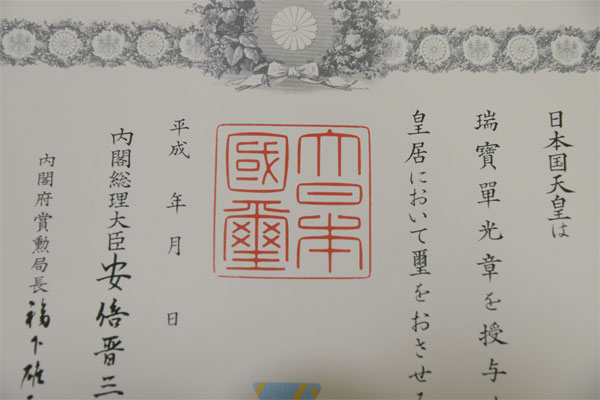 日本国天皇は
瑞寶單光章を授与
皇居において璽をおさせる
大日本國璽
平成 年 月 日
内閣総理大臣 安倍晋三
内閣府賞勲局長 福下雄